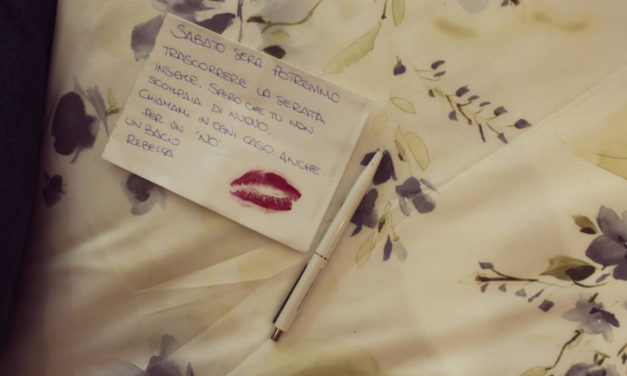 SABATO SERA POTREMMO
TRASCORRERE LA SERATA
INSIEME. SPERO CHE TU NON
SCOMPAIA DI NUOVO.
CHIAMAMI IN OGNI CASO ANCHE
PER UN "NO"
UN BACIO
REBECCA